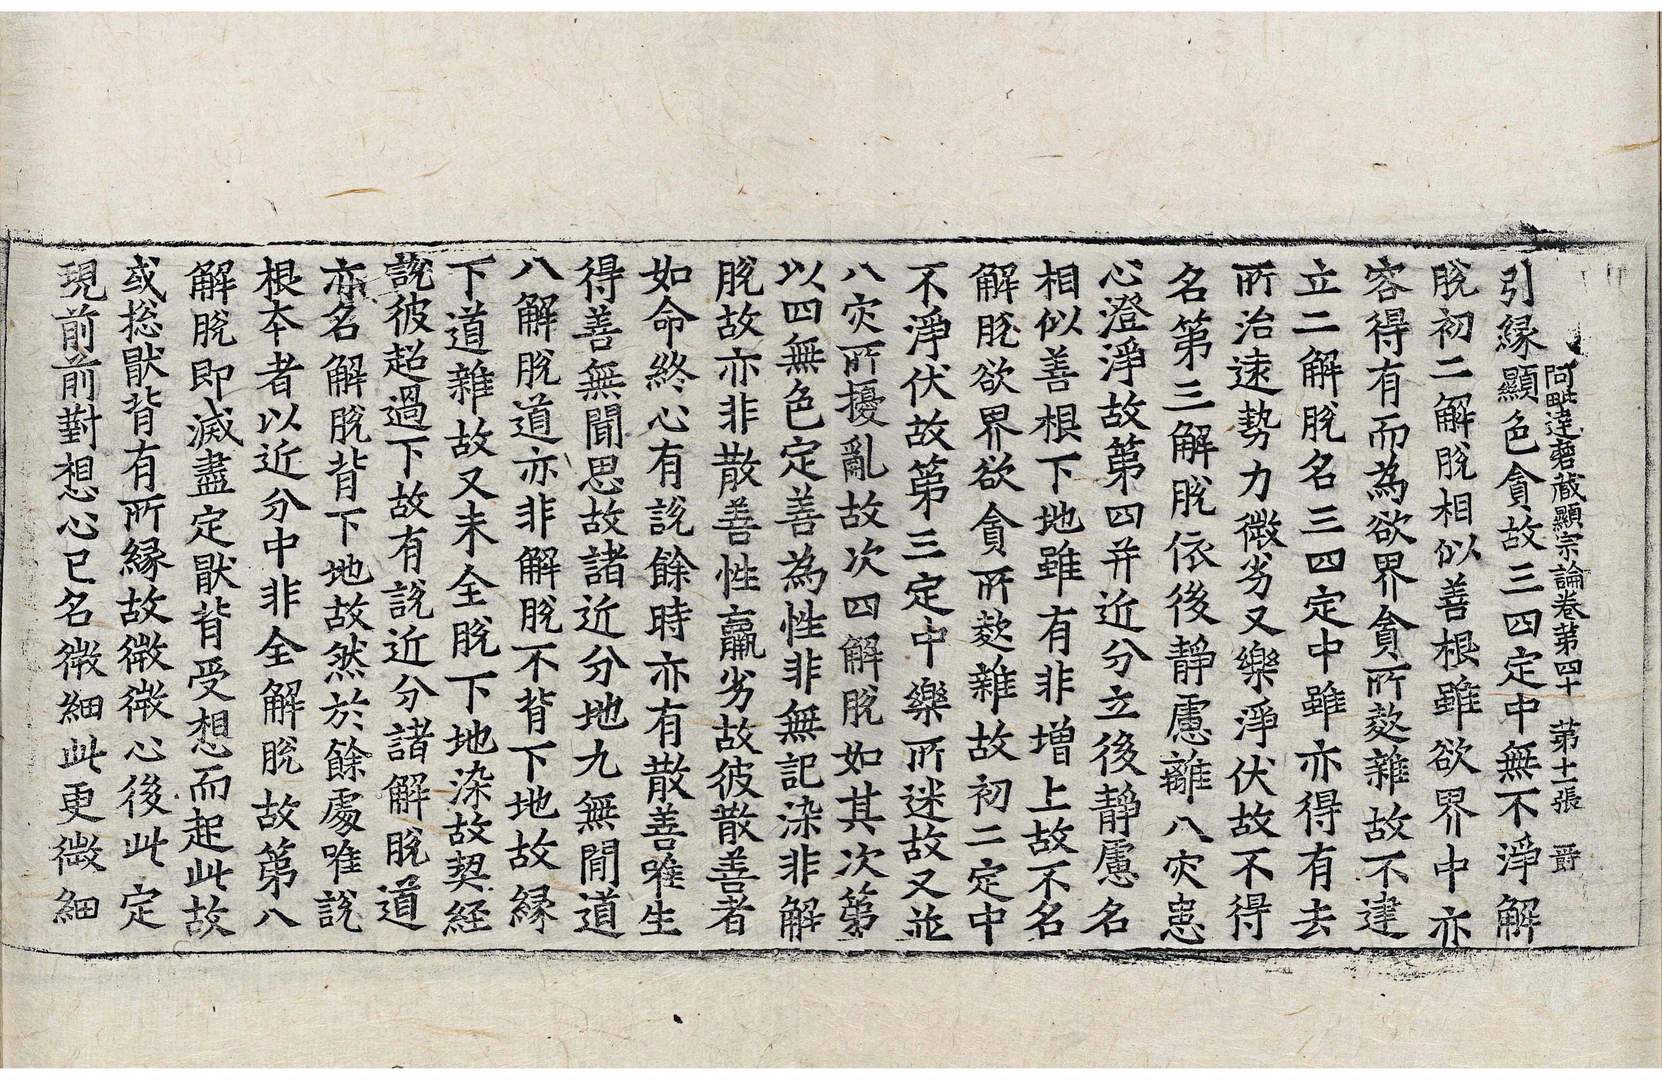 阿毗達磨藏顯宗論卷第四十　第十一張　爵
引緣顯色貪故三四定中無不淨解
脫初二解脫相似善根雖欲界中亦
容得有而為欲界貪所㱟雜故不建
立二解脫名三四定中雖亦得有去
所治遠勢力微劣又樂淨伏故不得
名第三解脫依後靜慮離八灾患
心澄淨故第四并近分立後靜慮名
相似善根下地雖有非增上故不名
解脫欲界欲貪所㱟雜故初二定中
不淨伏故第三定中樂所迷故又並
八灾所擾亂故次四解脫如其次第
以四無色定善為性非無記染非解
脫故亦非散善性羸劣故彼散善者
如命終心有說餘時亦有散善唯生
得善無聞思故諸近分地九無間道
八解脫道亦非解脫不背下地故緣
下道雜故又未全脫下地染故契經
說彼超過下故有說近分諸解脫道
亦名解脫背下地故然於餘處唯說
根本者以近分中非全解脫故第八
解脫即滅盡定猒背受想而起此故
或捴猒背有所緣故微微心後此定
現前前對想心已名微細此更微細